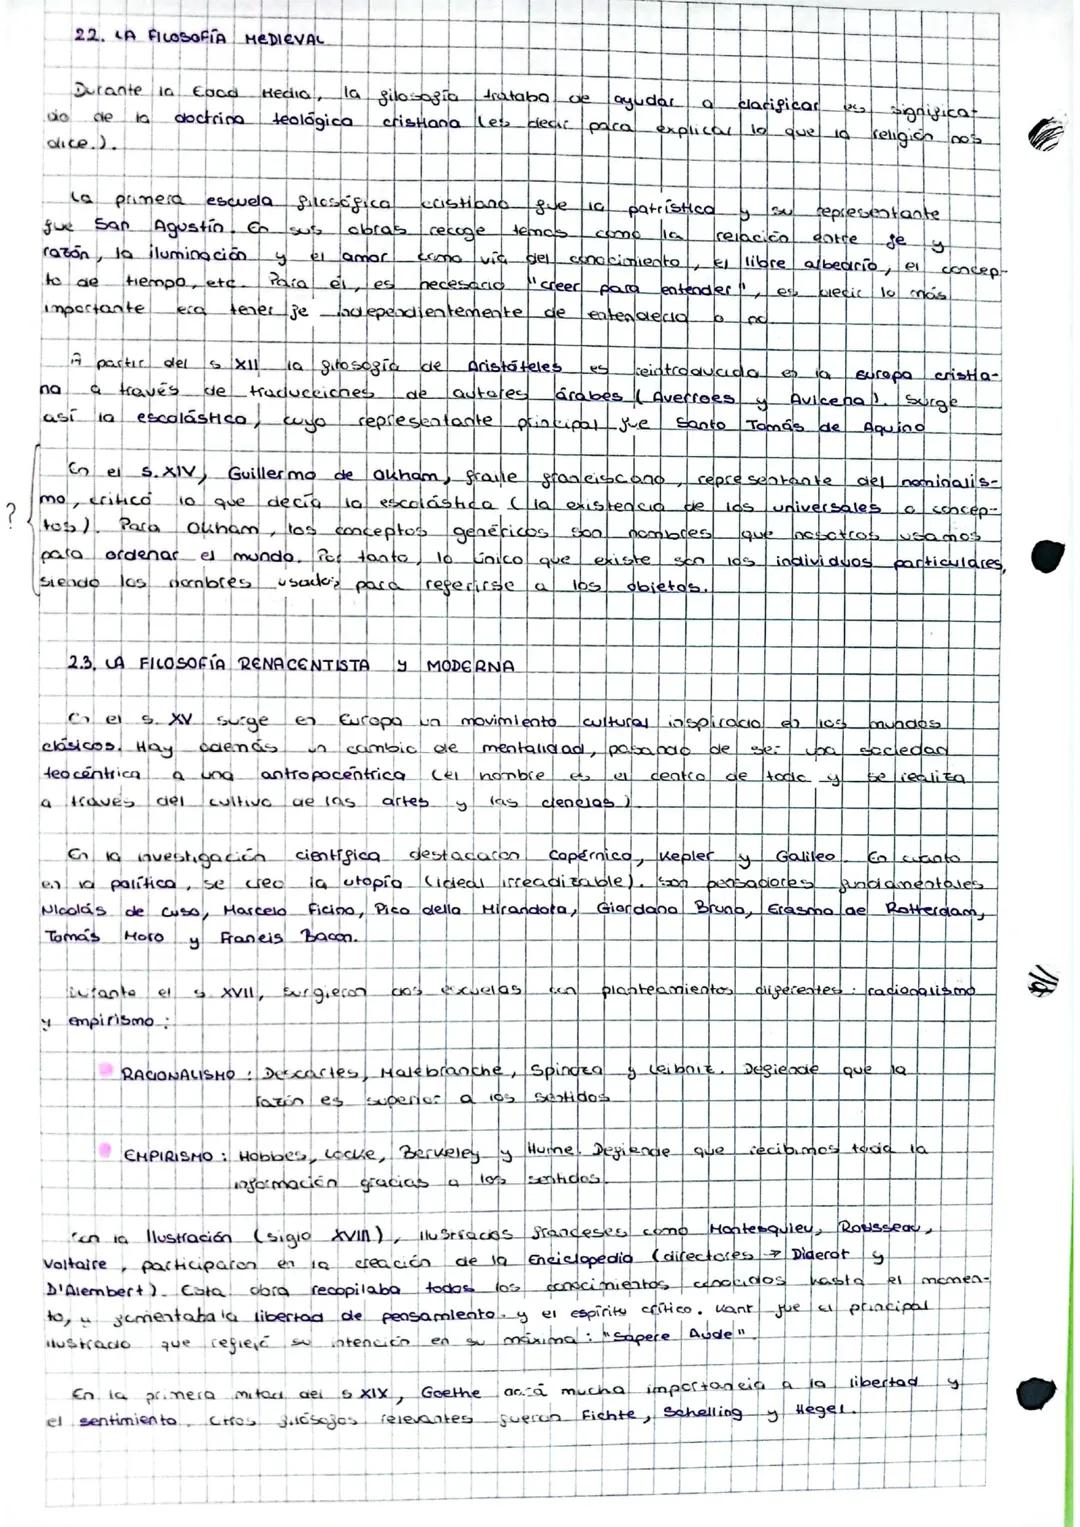 2.2. LA FILOSOFÍA MEDIEVAL
Durante la Edad Media, la filosofía trataba de ayudar a clarificar significa-
do de la doctrina teológica cristiana (es decir para explicar lo que la religión nos
dice.).
La primera escuela filosófica cristiana fue la patrística y su representante
fue San Agustín. En sus obras recoge temas como la relación entre fe y
razón, la iluminación y el amor como vía del conocimiento, el libre albedrío, el concep-
to de tiempo, etc. Para él, es necesario "creer para entender", es decir lo más
importante era tener fe independientemente de entenderla o no.
A partir del s XII la filosofía de Aristóteles es reintroducida en la Europa cristia-
na a través de traducciones de autores árabes (Averroes y Avicena). Surge
así la escolástica, cuyo representante principal fue Santo Tomás de Aquino
En el s.XIV, Guillermo de Okham, fraile franciscano, representante del nominalis-
?
mo, criticó lo que decía la escolástica (la existencia de los universales o concep-
tos). Para Okham, los conceptos genéricos son nombres que nosotros usamos
para ordenar el mundo. Por tanto, lo único que existe son los individuos particulares,
siendo los nombres usados para referirse a los objetos.
2.3. LA FILOSOFÍA RENACENTISTA Y MODERNA
En el s. XV surge en Europa un movimiento cultural inspirado en los mundos
clásicos. Hay además un cambio de mentalidad, pasando de ser una sociedad
teocéntrica a una antropocéntrica (el hombre es el centro de todo y se realiza
a través del cultivo de las artes y las ciencias)
En la investigación científica destacaron Copérnico, Kepler y Galileo. En cuanto
en la política, se creo la utopía (ideal irreadizable). Son pensadores fundamentales
Nicolás de Cusa, Marcelo Ficino, Pico della Mirandola, Giordano Bruno, Erasmo de Rotterdam,
Tomás Moro y Francis Bacon.
Durante el s. XVII, surgieron dos escuelas con planteamientos diferentes: racionalismo
y empirismo:
RACIONALISMO: Descartes, Malebranche, Spinoza y Leibniz. Defiende que la
razón es superior a los sentidos
EMPIRISMO: Hobbes, Locke, Berkeley y Hume. Defiende que recibimos toda la
información gracias a los sentidos.
Con la Ilustración (siglo XVIII), ilustrados franceses como Montesquieu, Rousseau,
Voltaire, participaron en la creación de la Enciclopedia (directores → Diderot y
D'Alembert). Esta obra recopilaba todos los conocimientos conocidos hasta el momen-
to, y fomentaba la libertad de pensamiento y el espíritu crítico. Kant fue el principal
ilustrado que refleja su intención en su máxima: "Sapere Aude".
En la primera mitad del s XIX, Goethe mucha importancia a la libertad y
el sentimiento. Otros filósofos relevantes fueron Fichte, Schelling y Hegel.